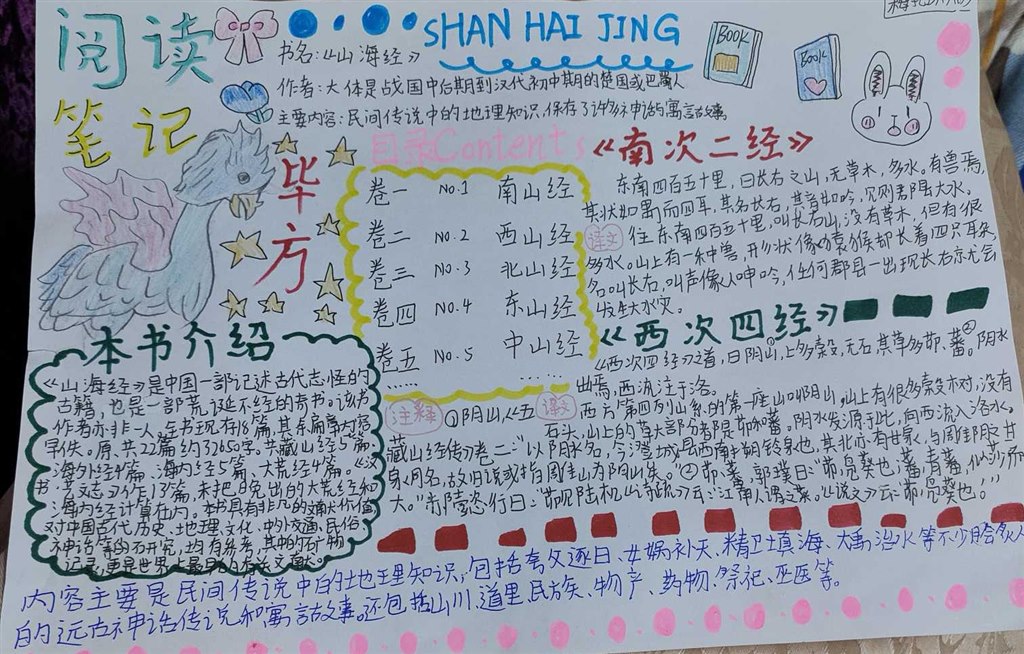 阅读
笔记
SHAN HAI JING
BOOK
BOOK
书名:《山海经》
作者:大体是战国中后期到汉代初中期的楚国或巴蜀人
主要内容:民间传说中的地理知识,保存了许多神话寓言故事
毕方
目录Contents
卷一 No.1 南山经
卷二 No.2 西山经
卷三 No.3 北山经
卷四 No.4 东山经
卷五 No.5 中山经
…… ……
《南次二经》
东南四百五十里,曰长右之山,无草木,多水。有兽焉,
其状如禺而四耳,其名长右,其音如吟,见则郡县大水。
译文 往东南四百五十里,叫长右山,没有草木,但有很
多水。山上有一种兽,形状像猕猴却长着四只耳朵
名叫长右,叫声像人呻吟,任何郡县一出现长右亦尤会
发生大水灾。
《西次四经》
《西次四经》之首,曰阴山,上多榖,无石,其草多茆、蕃。阴水
出焉,西流注于洛。
译文 西方第四列山系的第一座山叫阴山,山上有很多榖木树,没有
石头,山上的草大部分都是茆和蕃。阴水发源于此,向西流入洛水。
注释 ①阴山,《五
藏山经传》卷二:“以阴脉名,今澄城县西南
大。”郝懿行曰:
本书介绍
《山海经》是中国一部记述古代志怪的
古籍,也是一部荒诞不经的奇书。该书
作者亦非一人,全书现存18篇,其余篇章内容
早佚。原共22篇约32650字。共藏山经5篇、
海外经4篇,海内经5篇,大荒经4篇。《汉
书·艺文志》作13篇,未把晚出的大荒经和
海内经计算在内。本书具有非凡的文献价值
对中国古代历史、地理、文化、中外交通、民俗、
神话等的研究,均有参考,其中的矿物
记录,更是世界上最早的有关文献。
内容主要是民间传说中的地理知识,包括夸父逐日、女娲补天、精卫填海、大禹治水等不少脍炙人
的远古神话传说和寓言故事。还包括山川、道里、民族、物产、药物、祭祀、巫医等。